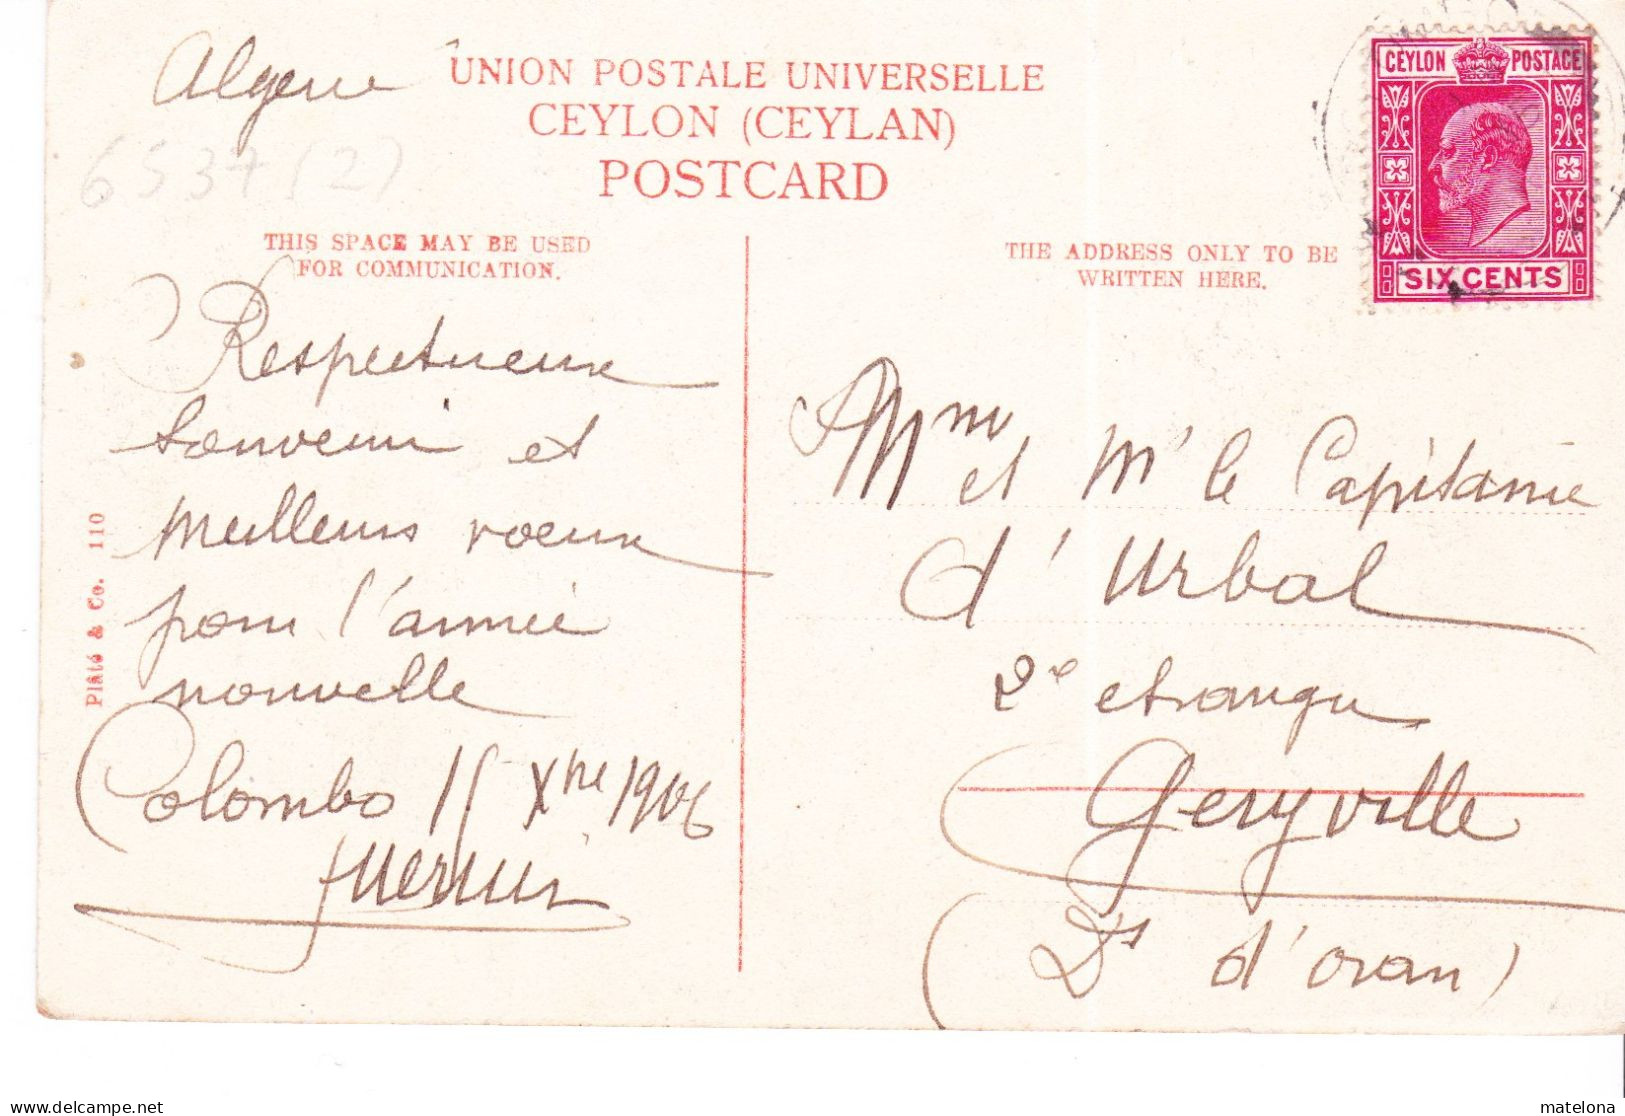 Algerie
UNION POSTALE UNIVERSELLE
CEYLON (CEYLAN)
POSTCARD
6537 (2)
CEYLON POSTAGE
SIX CENTS
THIS SPACE MAY BE USED
FOR COMMUNICATION.
THE ADDRESS ONLY TO BE
WRITTEN HERE.
Respectueux
souvenir et
meilleurs voeux
pour l'année
nouvelle
Colombo 15 Xbre 1906
Plâté & Co. 110
Mme et Mr le Capitaine
d'Urbal
2e etranger
Geryville
(Dt d'oran)
delcampe.net
matelona